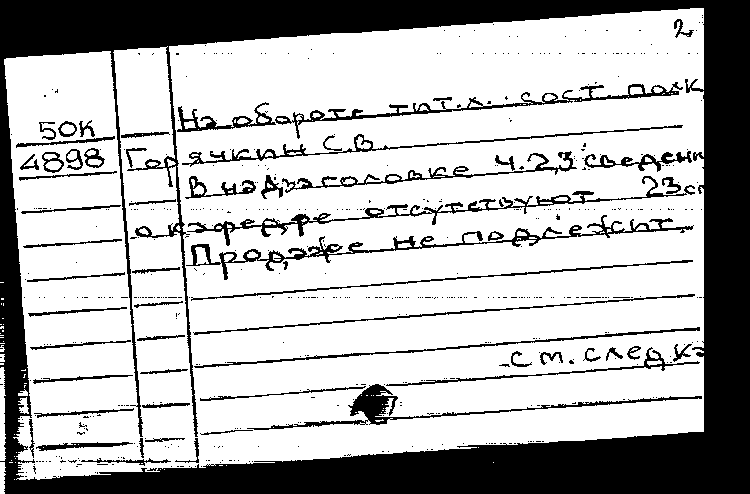 2
На обороте тит.л.: сост. полк
50К
4898 Горячкин С.В.
В надзаголовке ч.2,3 сведени
о кафедре отсутствуют. 23см
Продаже не подлежит.
см. след ка